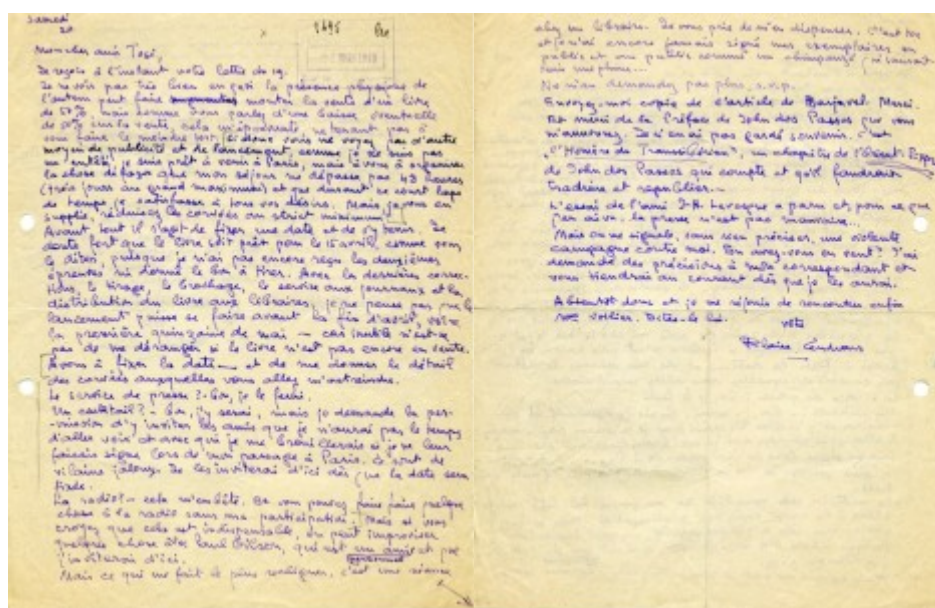 samedi
20
Mon cher ami Tosi,
Je reçois à l'instant votre lettre du 19.
Je ne vois pas très bien en quoi la présence physique de
l'auteur peut faire monter la vente d'un livre
de 50%, mais comme vous parlez d'une baisse éventuelle
de 50% sur la vente, cela m'épouvante, ne tenant pas à
vous faire le moindre tort. Si donc vous ne voyez pas d'autre
moyen de publicité et de lancement, comme je ne suis pas
un entêté, je suis prêt à venir à Paris, mais à vous à organiser
la chose de façon que mon séjour ne dépasse pas 48 heures
(trois jours au grand maximum) et que durant ce court laps
de temps je satisfasse à tous vos désirs. Mais, je vous en
supplie, réduisez les corvées au strict minimum!
Avant tout il s'agit de fixer une date et de s'y tenir. Je
doute fort que le livre soit prêt pour le 15 avril comme vous
le dites, puisque je n'ai pas encore reçu les deuxièmes
épreuves ni donné le bon à tirer. Avec les dernières correc-
tions, le tirage, le brochage, le service aux journaux et la
distribution du livre aux libraires, je ne pense pas que le
lancement puisse se faire avant la fin d'avril, voire
la première quinzaine de mai — car inutile n'est-ce
pas de me déranger si le livre n'est pas encore en vente.
Avons à fixer la date — et de me donner le détail
des corvées auxquelles vous allez m'astreindre.
Le service de presse? - Bon, je le ferai.
Un cocktail? - Bon, j'y serai, mais je demande la per-
-mission d'y inviter les amis que je n'aurai pas le temps
d'aller voir et avec qui je me brouillerais si je ne leur
faisais signe lors de mon passage à Paris. Ce sont de
vilains jaloux. Je les inviterai d'ici dès que la date sera
fixée.
La radio? - cela m'embête. Be vous pouvez faire faire quelque
chose à la radio sans ma participation. Mais si vous
croyez que cela est indispensable, on peut improviser
quelque chose avec Paul Gilson, qui est un ami personnel et que
j'inviterai d'ici.
Mais ce qui me fait le plus rechigner, c'est une séance
chez un libraire. Je vous prie de m'en dispenser. C'est
et je n'ai encore jamais signé mes exemplaires en
public et au public comme un chimpanzé
Ne m'en demandez pas plus, s.v.p.
Envoyez-moi copie de l'article de Barjavel. Merci.
Et merci de la Préface de John dos Passos que vous
m'annoncez. Je n'en ai pas gardé souvenir. C'est
"l'Homère du Transsibérien", un chapitre de l'Orient-Express
de John dos Passos qui compte et qu'il faudrait
traduire et republier. —
L'essai de l'ami J.H. Levesque a paru et, pour ce que
la presse n'est pas mauvaise...
Mais on me signale, sans rien préciser, une violente
campagne contre moi. En avez-vous eu vent? J'ai
demandé des précisions à mon correspondant et
vous tiendrai au courant dès que je les aurai.
A bientôt donc et je me réjouis de rencontrer enfin
voilier. Dites-le lui.
votre
Blaise Cendrars